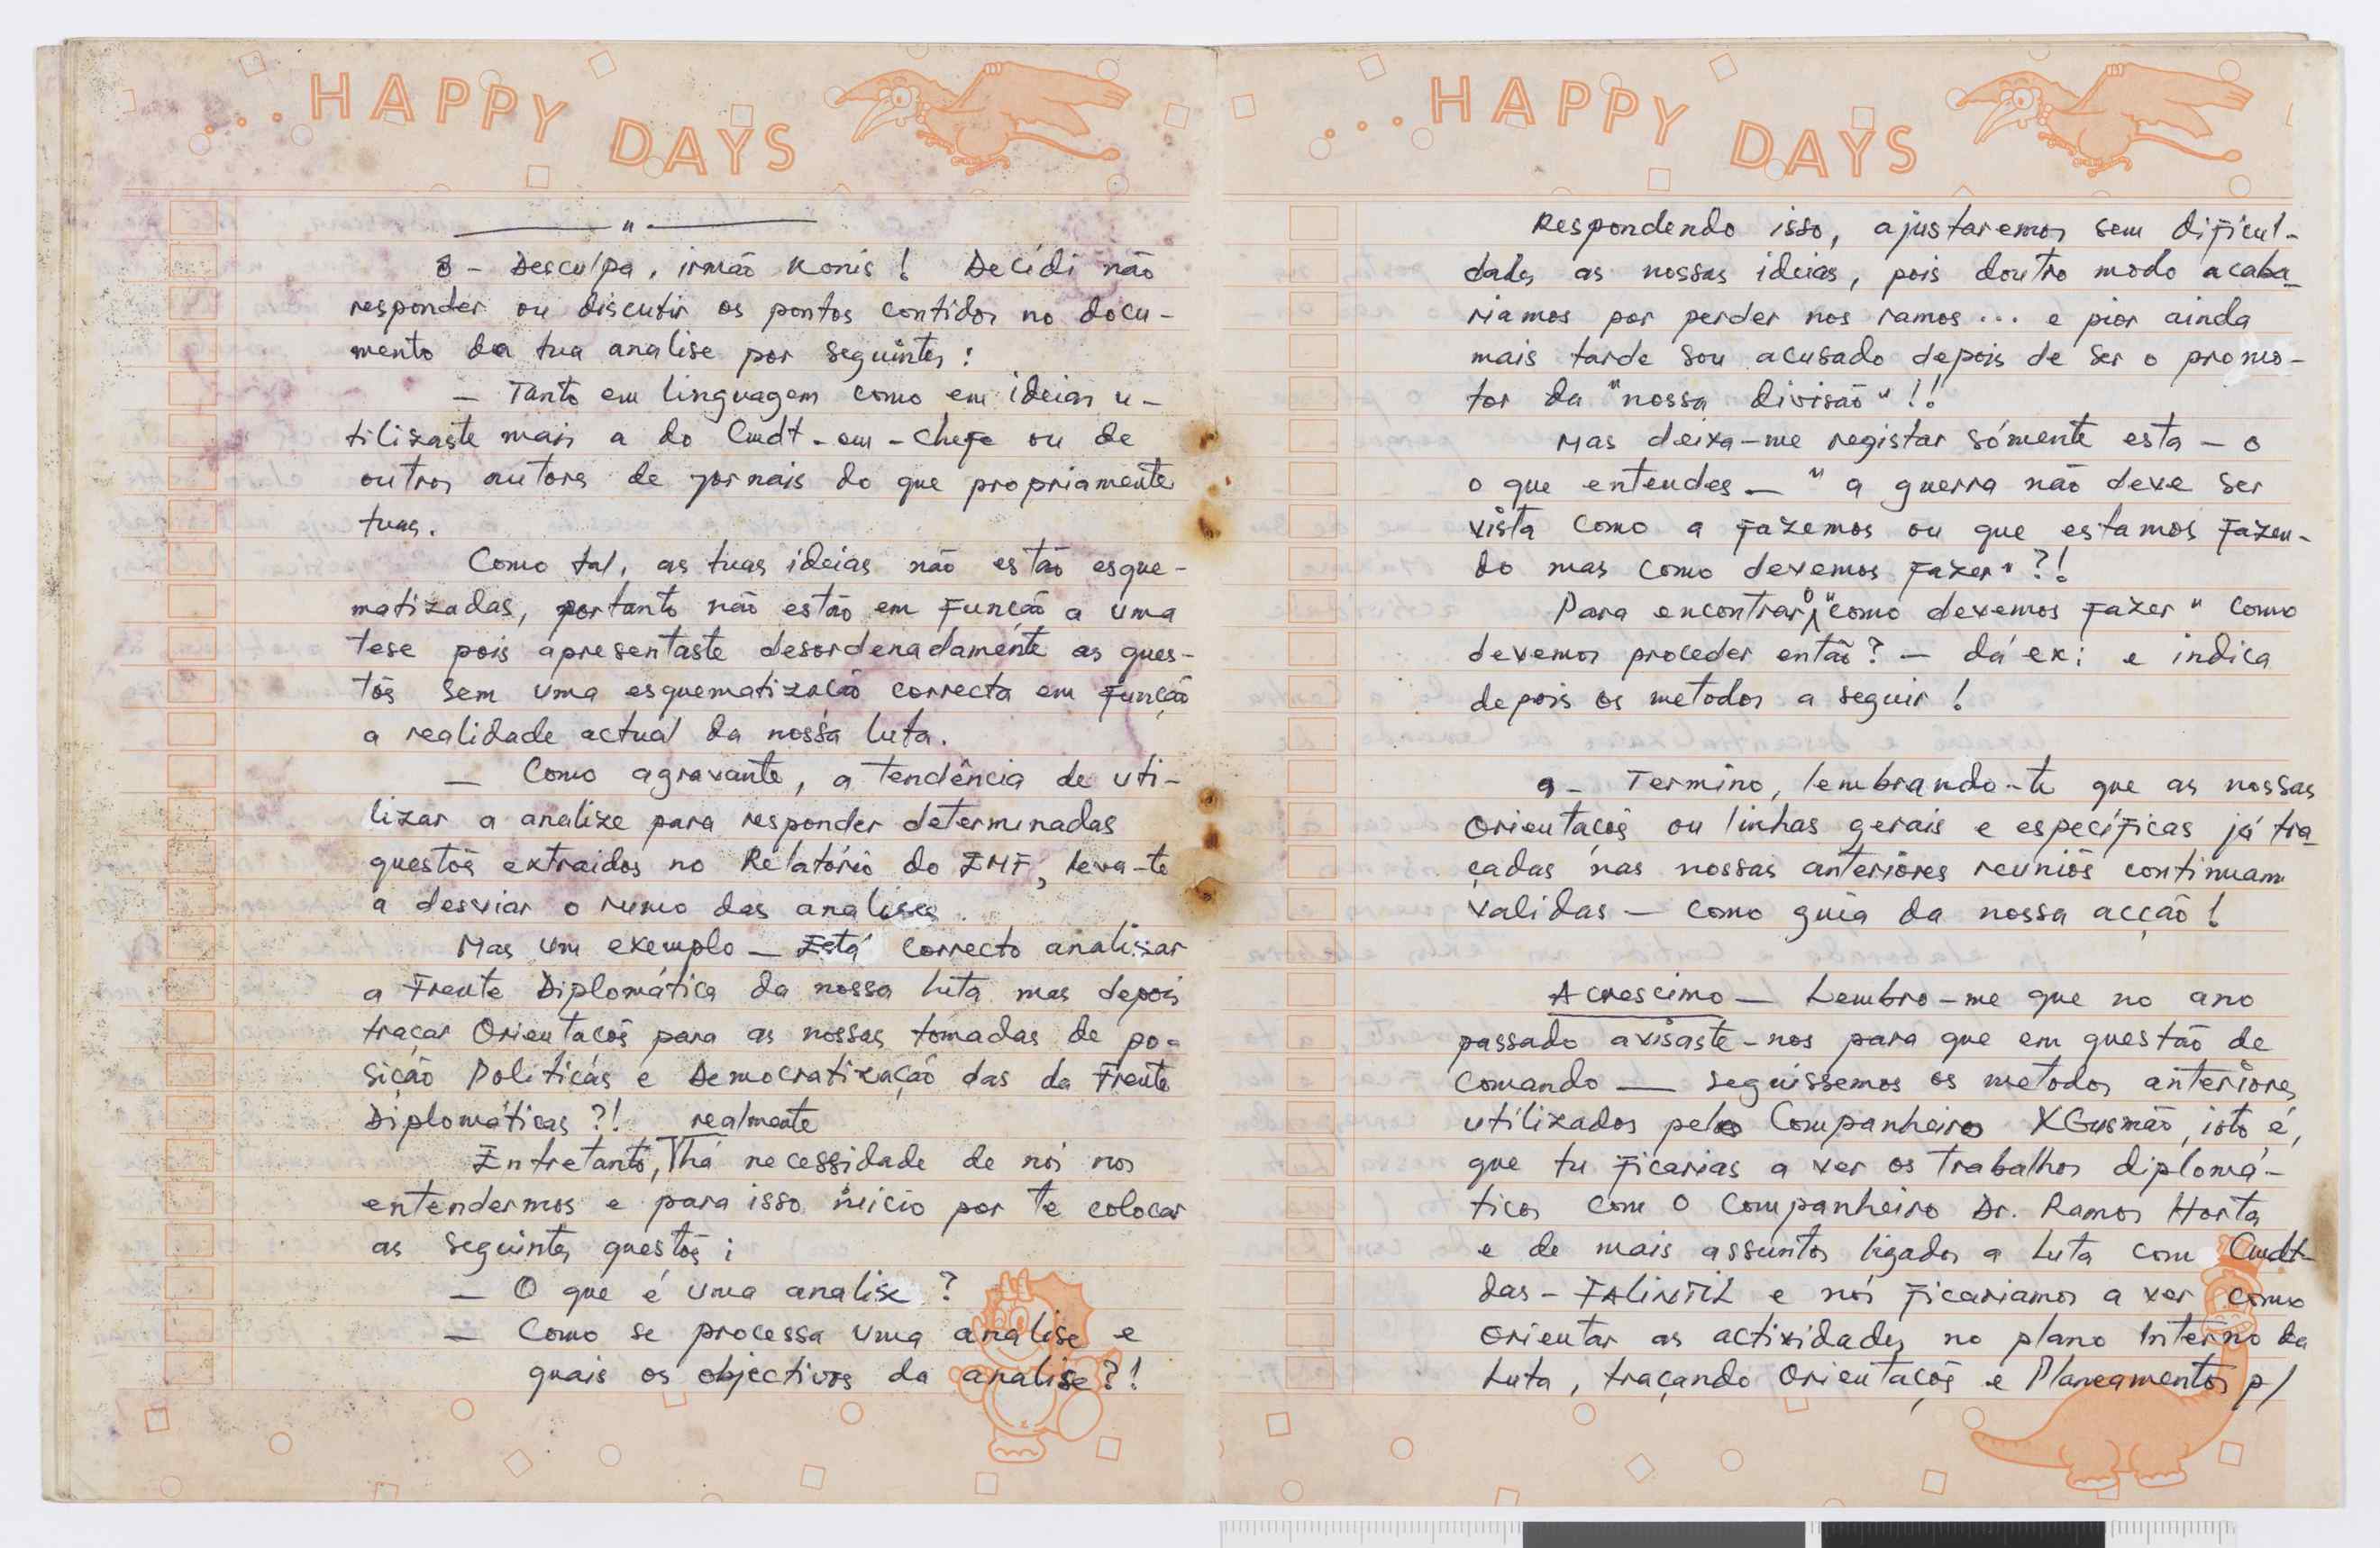 ...HAPPY DAYS
———— " ————
8 - Desculpa, irmão Konis! Decidi não
responder ou discutir os pontos contidos no docu-
mento da tua analise por seguintes:
— Tanto em linguagem como em ideias u-
tilizaste mais a do Cmdt-em-chefe ou de
outros autores de jornais do que propriamente
tuas.
Como tal, as tuas ideias não estão esque-
matizadas, portanto não estão em função a uma
tese pois apresentaste desordenadamente as ques-
tõs sem uma esquematização correcta em função
a realidade actual da nossa luta.
— Como agravante, a tendência de uti-
lizar a analize para responder determinadas
questõs extraidos no Relatório do EMF, leva-te
a desviar o rumo das analises.
Mas um exemplo — Está correcto analizar
a Frente Diplomática da nossa Luta mas depois
traçar Orientacõs para as nossas tomadas de po-
sição Politicas e Democratização das da Frente
Diplomáticas ?! realmente
Entretanto, há necessidade de nós nos
entendermos e para isso inicio por te colocar
as seguintes questõs:
— O que é uma analise ?
— Como se processa uma analise e
quais os objectivos da analise ?!
...HAPPY DAYS
Respondendo isso, ajustaremos sem dificul-
dades as nossas ideias, pois doutro modo acaba-
riamos por perder nos ramos ... e pior ainda
mais tarde sou acusado depois de ser o promo-
tor da "nossa divisão" !!
Mas deixa-me registar sómente esta — o
o que entendes — " a guerra não deve ser
vista como a fazemos ou que estamos fazen-
do mas como devemos fazer" ?!
Para encontrar o "como devemos fazer" como
devemos proceder então? — dá ex: e indica
depois os metodos a seguir!
9 - Termino, lembrando-te que as nossas
Orientacõs ou linhas gerais e específicas já tra-
çadas nas nossas anteriores reuniõs continuam
validas — como guia da nossa acção!
Acrescimo — Lembro-me que no ano
passado avisaste-nos para que em questão de
Comando — seguissemos os metodos anteriores
utilizados pelo Companheiro XGusmão, isto é,
que tu ficarias a ver os trabalhos diplomá-
ticos com o Companheiro Dr. Ramos Horta
e de mais assuntos ligados a Luta com Cmdt-
das - FALINTIL e nós ficariamos a ver como
orientar as actividades no plano Interno da
Luta, traçando Orientacõs e Planeamentos p/